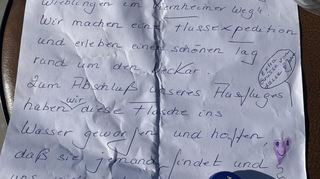 Wieblingen im Wernheimer Weg".
Wir machen eine Flussexpedition
und erleben einen schönen Tag
rund um den Neckar.
Zum Abschluß unseres Ausfluges
haben wir diese Flasche ins
Wasser geworfen und hoffen,
daß sie jemand findet und